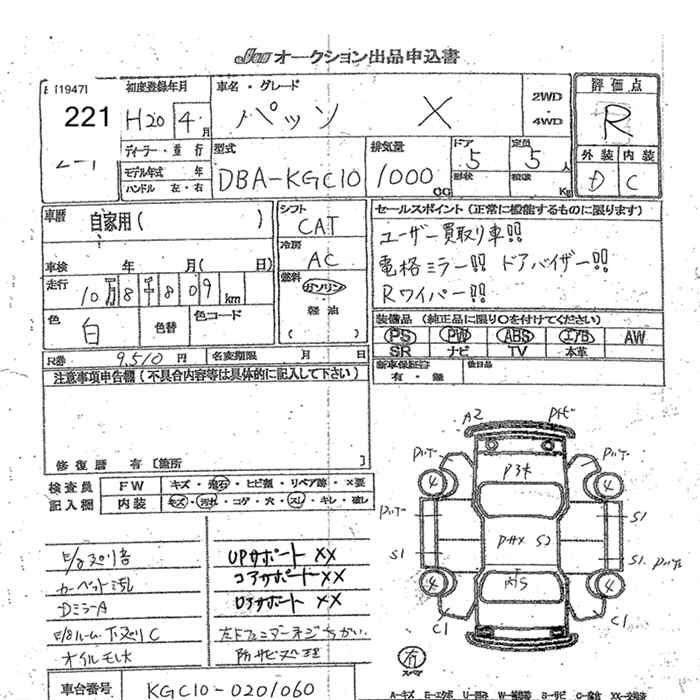 JAU オークション出品申込書
[1947]
221
初度登録年月
H20 4 月
ディーラー・並行
モデル年式 年
ハンドル 左・右
車名・グレード
パッソ X
2WD
・
4WD
評価点
R
外装 内装
D C
型式
DBA-KGC10
排気量
1000 CC
ドア
5
形状
定員
5 人
積載
Kg
車歴
自家用( )
車検 年 月( 日)
走行
10万8千809 km
色
白
色替
色コード
シフト
CAT
冷房
AC
燃料
ガソリン
軽油
( )
セールスポイント(正常に機能するものに限ります)
ユーザー買取り車!!
電格ミラー!! ドアバイザー!!
Rワイパー!!
装備品(純正品に限り○を付けてください)
PS PW ABS エアB AW
SR ナビ TV 本革
新車保証書
有・無
後日品
R券 9,510 円
名変期限 月 日
注意事項申告欄(不具合内容等は具体的に記入して下さい)
修復歴 有 [箇所 ]
検査員
記入欄
FW キズ・飛石・ヒビ割・リペア跡・×要
内装 キズ・汚れ・コゲ・穴・スレ・キレ・破し
カーペット汚れ
DミラーA
オイルモレ
UPサポート XX
コアサポート XX
ロアサポート XX
防サビ処理
車台番号 KGC10-0201060
A2
4
4
4
4
S1
S1
S1
C1
C1
有
A-キズ E-エクボ